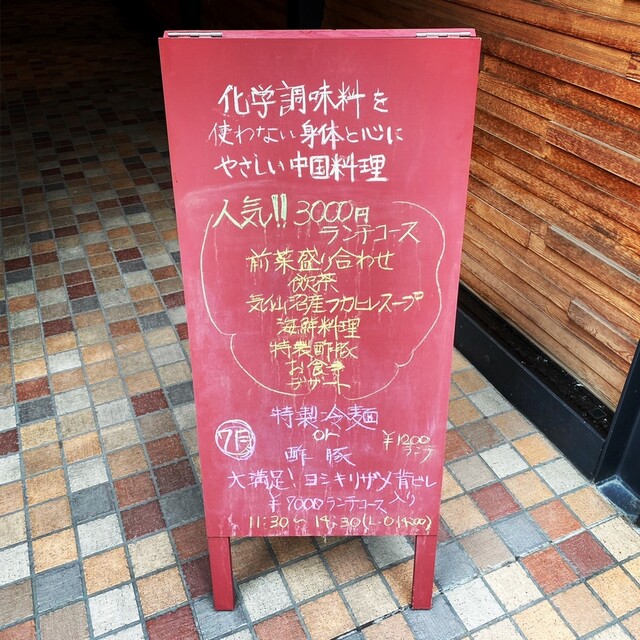 化学調味料を
使わない身体と心に
やさしい中国料理
人気!! 3000円
ランチコース
前菜盛り合わせ
飲茶
気仙沼産フカヒレスープ
海鮮料理
特製酢豚
お食事
デザート
7月
特製冷麺
or
酢豚
¥1200
ランチ
大満足! ヨシキリザメ背ビレ
入り
¥ 9000 ランチコース
11:30〜14:30(L・O 14:00)